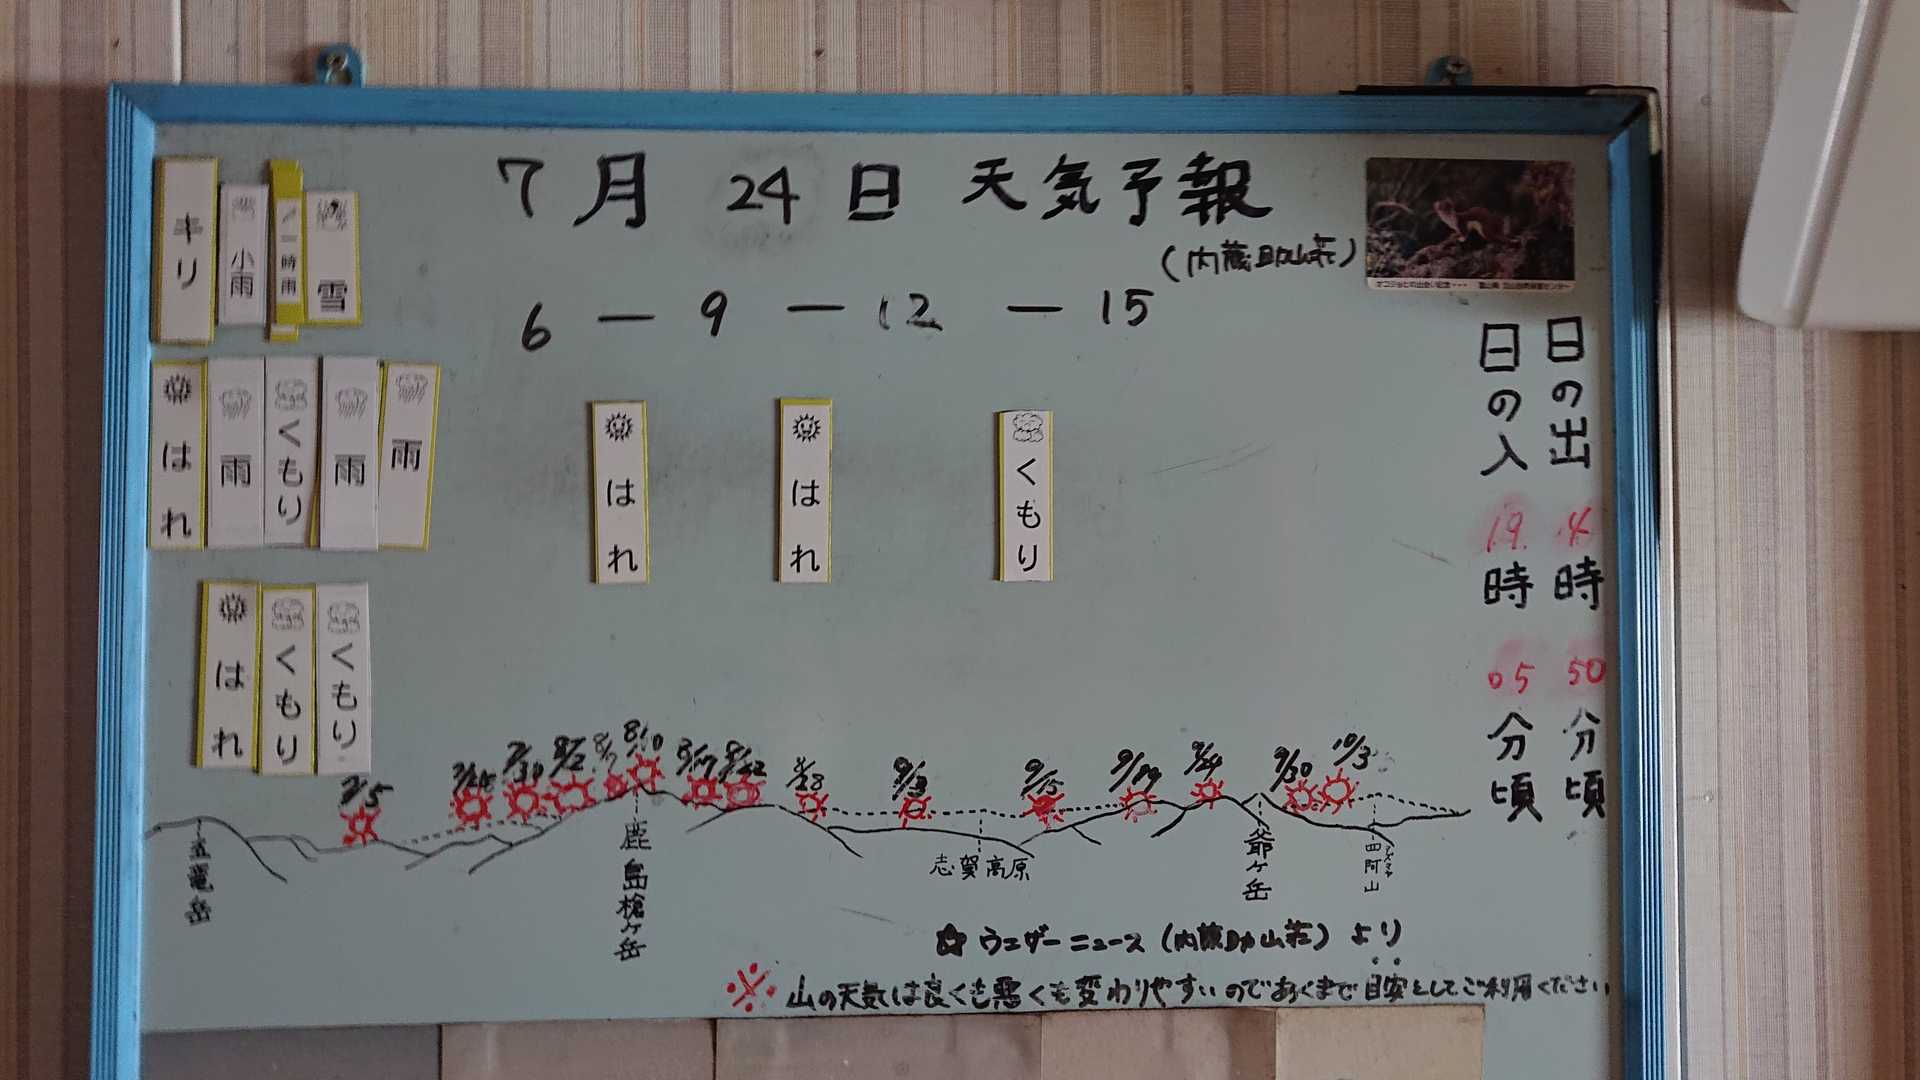 7月24日 天気予報
(内蔵助山荘)
6 — 9 — 12 — 15
キリ
小雨
一時雨
雪
はれ
雨
くもり
雨
雨
はれ
くもり
くもり
はれ
はれ
くもり
日の出 4時50分頃
日の入 19時05分頃
7/5
7/24
7/30
8/2
8/7
8/10
8/17
8/22
8/28
9/3
9/15
9/19
9/24
9/30
10/3
五竜岳
鹿島槍ヶ岳
志賀高原
爺ヶ岳
四阿山
☆ ウェザーニュース(内蔵助山荘)より
※ 山の天気は良くも悪くも変わりやすいのであくまで目安としてご利用ください